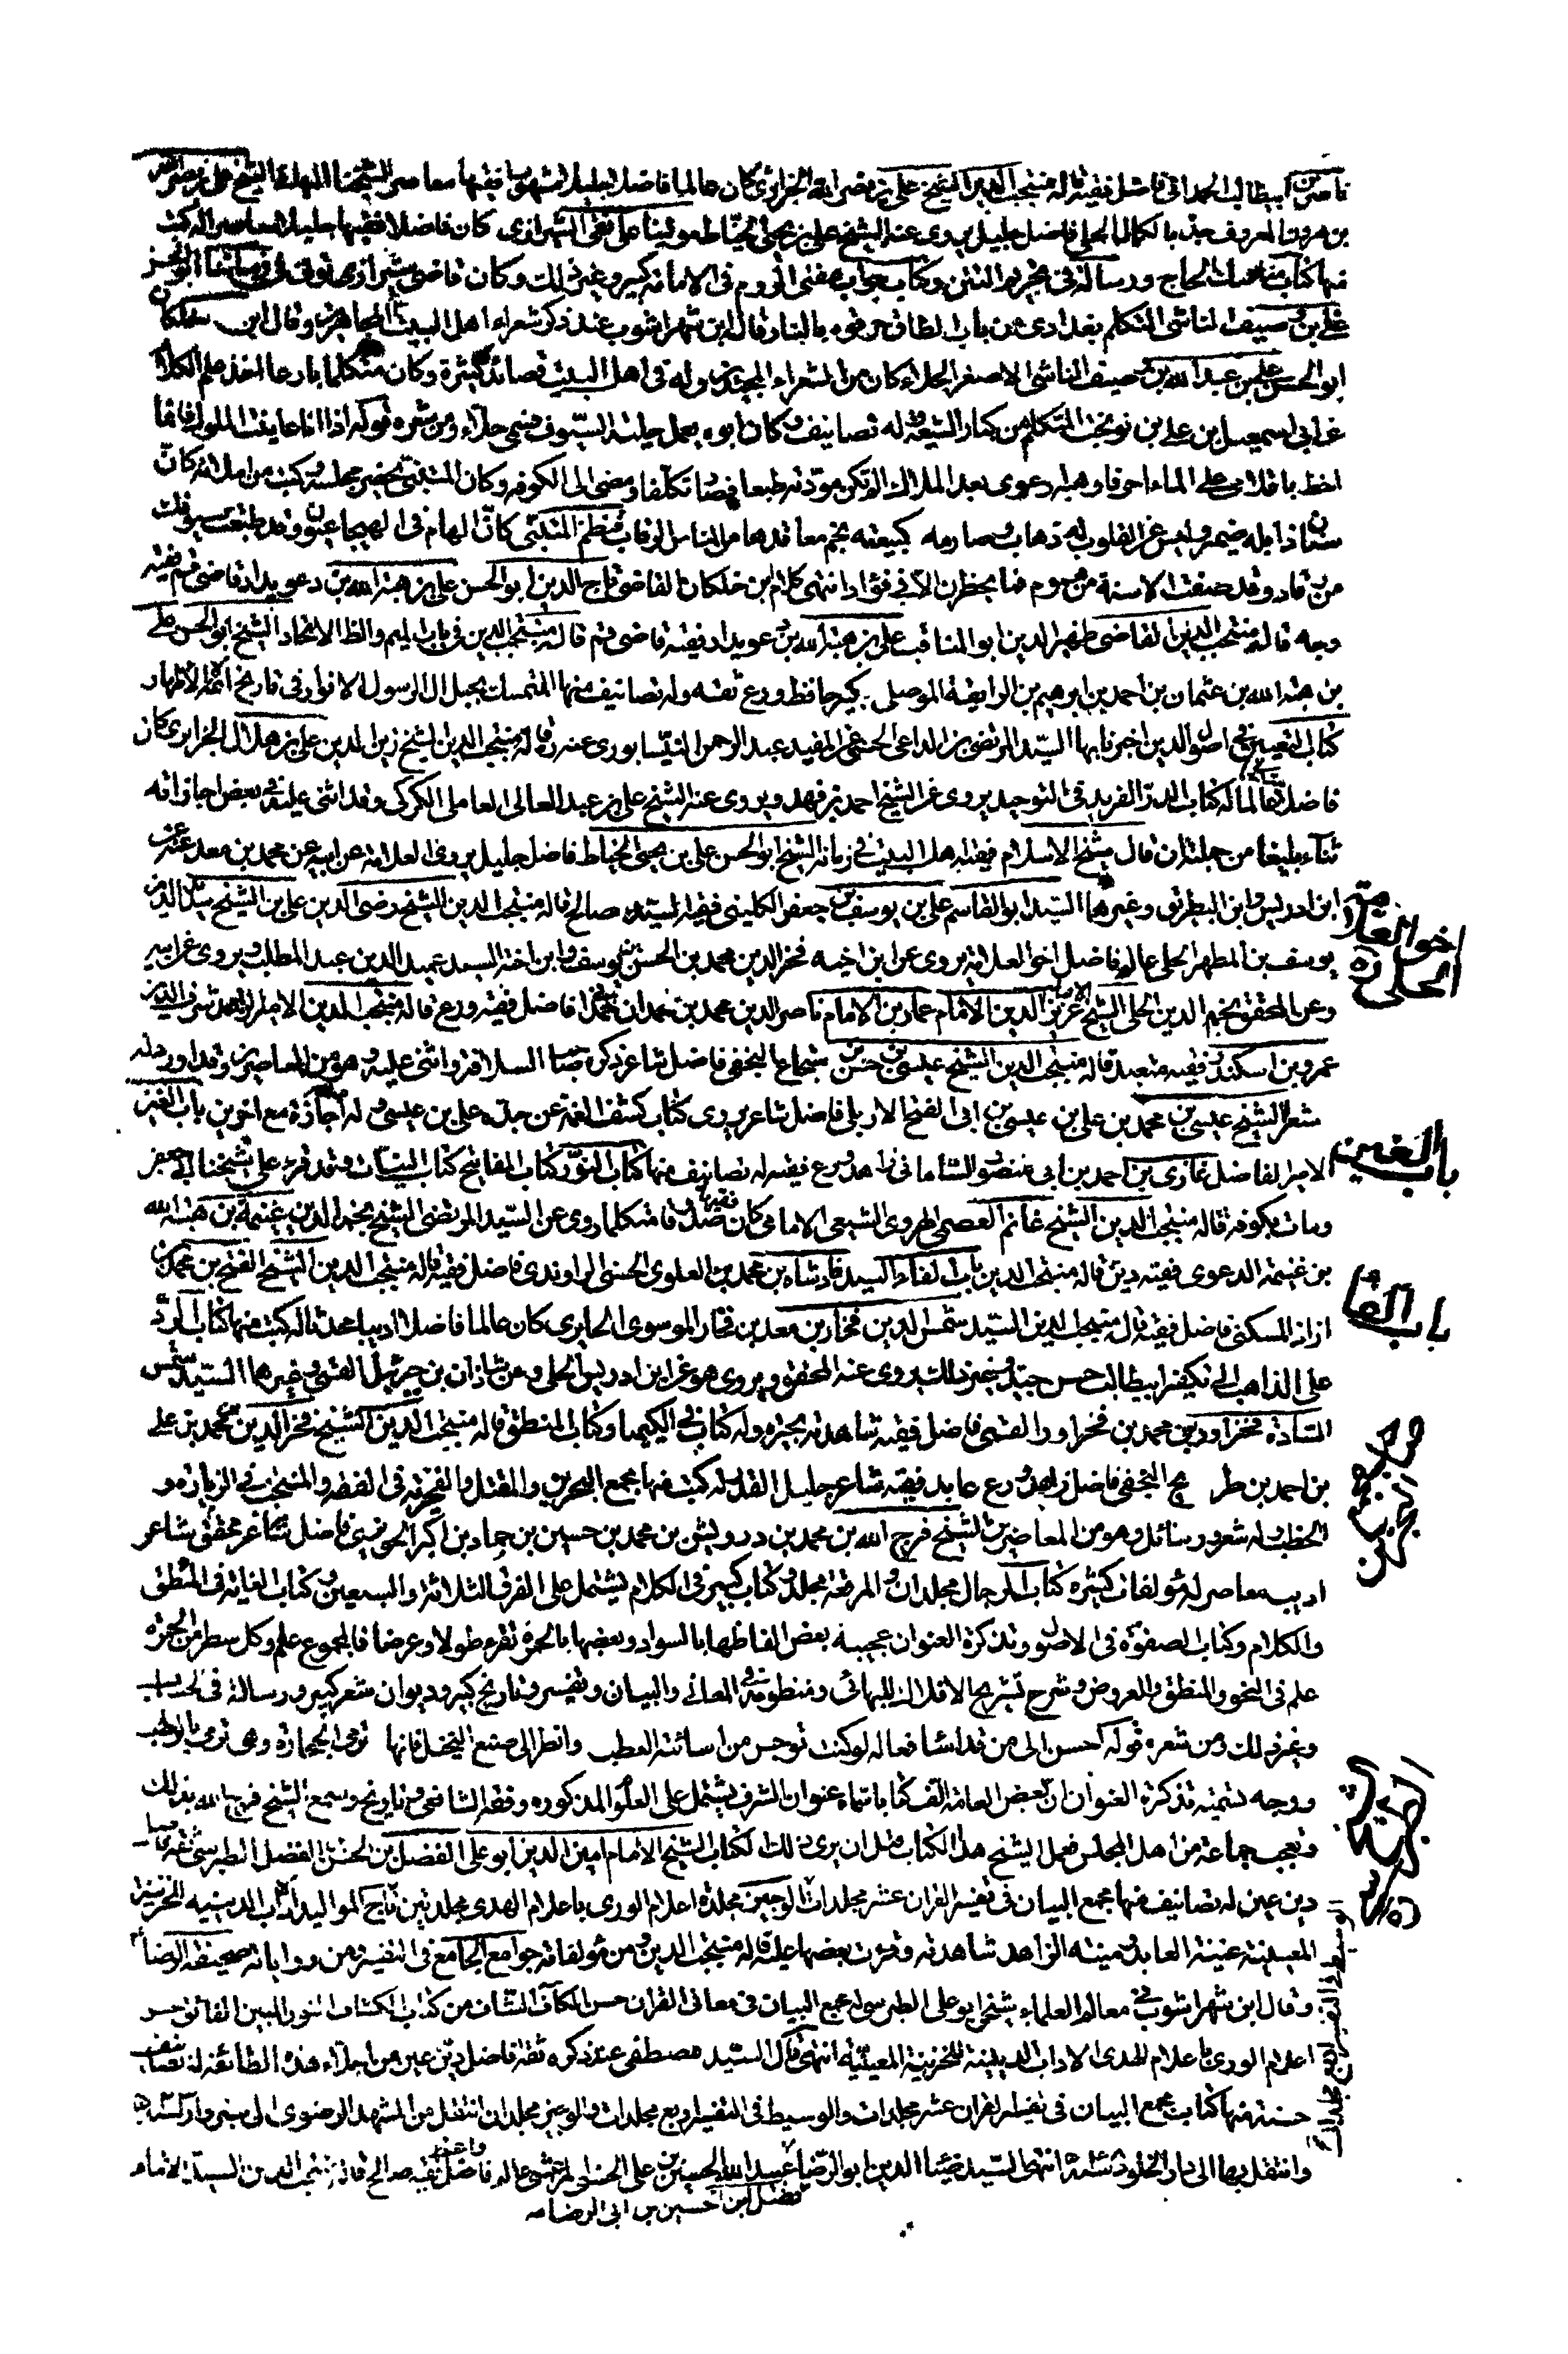 ناصر بن ابيطالب الحمداني فاضل فقيه قاله منتجب الدين الشيخ علي بن نصر الله الجزايري كان عالما فاضلا جليلا مشهورا فقيها معاصرا لشيخنا البهائي الشيخ علي بن نصر الله
بن هرون المعروف جده بالكمال الحلي فاضل جليل يروي عنه الشيخ علي بن يحيى الخياط مولينا علي نقي الشيرازي كان فاضلا فقيها جليلا معاصرا له كتب
منها كتاب مناسك الحاج ورسالة في تحريم التتن وكتاب جواب مفتي الروم في الامامة كبير وغير ذلك وكان قاضي شيراز
علي بن وصيف الناشي المتكلم بغدادي من باب الطاق حرقوه بالنار قاله ابن شهراشوب عند ذكر شعراء اهل البيت المجاهرين وقال ابن خلكان
ابو الحسن علي بن عبد الله بن وصيف الناشي الاصغر الحلاء كان من الشعراء المجيدين وله في اهل البيت قصائد كثيرة وكان متكلما بارعا اخذ علم الكلام
عن ابي اسمعيل بن علي بن نوبخت المتكلم من كبار الشيعة وله تصانيف وكان ابوه يعمل حلية السيوف فسمي حلاء ومن شعره قوله اذا انا عاتبت الملوك فانما
اخط باقلامي على الماء احرفا وهبه ارعوى بعد العتاب الم تكن مودته طبعا فصار تكلفا ومضى الى الكوفه وكان المتنبي يحضر مجلسه وكتب من املائه كان
سنان ذابله ضمير فليس عن القلوب له ذهاب وصارمه كبيعته بخم معاقدها من الناس الرقاب فنظم المتنبي كان الهام في الهيجا عيون وقد طبعت سيوفك
من رقاد وقد صغت الاسنة من هموم فما يخطرن الا في فؤاد انتهى كلام ابن خلكان القاضي تاج الدين ابو الحسن علي بن هبة الله بن دعويدار قاضي قم فقيه
وجه قاله منتجب الدين القاضي ظهير الدين ابو المناقب علي بن هبة الله بن دعويدار فقيه قاضي قم قاله منتجب الدين في باب الميم والظ الاتحاد الشيخ ابو الحسن علي
بن هبة الله بن عثمان بن احمد بن ابرهيم بن الرايقة الموصلي كبير حافظ ورع ثقه وله تصانيف منها المتمسك بحبل ال الرسول الانوار في تاريخ الائمة الاطهار
كتاب اليقين في اصول الدين اخبرنا بها السيد المرتضى بن الداعي الحسني عن المفيد عبد الرحمن النيسابوري عنه قاله منتجب الدين الشيخ زين الدين علي بن هلال الجزايري كان
فاضلا عالما له كتاب الدر الفريد في التوحيد يروي عن الشيخ احمد بن فهد ويروي عنه الشيخ علي بن عبد العالي العاملي الكركي وقد اثنى عليه في بعض اجازاته
ثناء بليغا من جملته ان قال شيخ الاسلام فقيه اهل البيت في زمانه الشيخ ابو الحسن علي بن يحيى الخياط فاضل جليل يروي العلامة عن ابيه عن محمد بن معد عنه عن
ابن ادريس وابن البطريق وغيرهما السيد ابو القاسم علي بن يوسف بن جعفر الكليني فقيه السيده صالح قاله منتجب الدين الشيخ رضي الدين علي بن الشيخ سديد الدين
يوسف بن المطهر الحلي عالم فاضل اخو العلامة يروي عن ابن اخيه فخر الدين محمد بن الحسن بن يوسف وابن اخته السيد عميد الدين عبد المطلب ويروي عن ابيه
وعن المحقق نجم الدين الحلي الشيخ عزيز الدين الامام عمار بن الامام ناصر الدين محمد بن حمدان فاضل فقيه ورع قاله منتجب الدين الامير الزاهد شرف الدين
عمرو بن اسكندر فقيه متعبد قاله منتجب الدين الشيخ عيسى بن حسن بن شجاع النجفي فاضل شاعر ذكره صاحب السلافة واثنى عليه وهو من المعاصرين وقد اورد له
شعرا الشيخ عيسى بن محمد بن علي بن عيسى بن ابي الفتح الاربلي فاضل شاعر يروي كتاب كشف الغمة عن جده علي بن عيسى وله اجازة مع اخوين باب الغين
الامير الفاضل غازي بن احمد بن ابي منصور الساماني زاهد ورع فقيه له تصانيف منها كتاب النور كتاب المفاتيح كتاب البينات وقد قرء على شيخنا ابي جعفر
ومات بكوفه قاله منتجب الدين الشيخ غانم العصمي الهروي الشيعي الامامي كان فاضلا فقيها متكلما روى عن السيد المرتضى الشيخ مجد الدين غنيمة بن هبة الله
بن غنيمة الدعوي فقيه دين قاله منتجب الدين باب الفاء السيد فادشاه بن محمد بن العلوي الحسني الراوندي فاضل فقيه قاله منتجب الدين الشيخ الفتح بن محمد بن
ازاد المسكني فاضل فقيه قاله منتجب الدين السيد شمس الدين فخار بن معد بن فخار الموسوي الحايري كان عالما فاضلا اديبا محدثا له كتب منها كتاب الرد
على الذاهب الى تكفير ابيطالب حسن جيد وغير ذلك يروي عنه المحقق ويروي هو عن ابن ادريس الحلي ومن شاذان بن جبرئيل القمي وغيرهما السيد شمس
السادة فخراور بن محمد بن فخراور القمي فاضل فقيه شاهدته بجبره وله كتاب في الكيميا وكتاب المنطق قاله منتجب الدين الشيخ فخر الدين بن محمد بن علي
بن احمد بن طريح النجفي فاضل زاهد ورع عابد فقيه شاعر جليل القدر له كتب منها مجمع البحرين والمقتل والفخرية في الفقه والمنتخب في الزياره و
الخطب وله شعر ورسائل وهو من المعاصرين الشيخ فرج الله بن محمد بن درويش بن محمد بن حسين بن حماد بن اكبر الحويزي فاضل شاعر محقق شاعر
اديب معاصر له مؤلفات كثيره كتاب الرجال مجلدان والمرقعة مجلد وكتاب كبير في الكلام يشتمل على الفرق الثلاثة والسبعين وكتاب الغاية في المنطق
والكلام وكتاب الصفوة في الاصول وتذكرة العنوان عجيبة بعض الفاظها بالسواد وبعضها بالحمرة تقرء طولا وعرضا فالمجموع علم وكل سطر من الحمرة
علم في النحو والمنطق والعروض وشرح تشريح الافلاك للبهائي ومنظومة في المعاني والبيان وتفسير وتاريخ كبير وديوان شعر كبير ورسالة في الحساب
وغير ذلك ومن شعره قوله احسن الى من قد اسا فعاله لو كنت توجس من اساءته العطب وانظر الى صنع النخيل فانها ترمى الحجارة وهي ترمي بالرطب
ووجه تسميته تذكرة العنوان ان بعض العامة الف كتابا سماه عنوان الشرف يشتمل على العلوم المذكوره وفقه الشافعي وتاريخ وسمع الشيخ فرج الله بذلك
وتعجب جماعة من اهل المجلس فعمل الشيخ هذا الكتاب قبل ان يرى ذلك الكتاب الشيخ الامام امين الدين ابو علي الفضل بن الحسن بن الفضل الطبرسي ثقة فاضل
دين عين له تصانيف منها مجمع البيان في تفسير القران عشر مجلدات الوجيز مجلدة اعلام الورى باعلام الهدى مجلدتين تاج المواليد الاداب الدينيه للخزينة
المعينية غنية العابد ومنية الزاهد شاهدته وقرءت بعضها عليه قاله منتجب الدين ومن مؤلفاته جوامع الجامع في التفسير ومن رواياته صحيفة الرضا
وقال ابن شهراشوب في معالم العلماء شيخي ابو علي الطبرسي له مجمع البيان في معاني القران حسن الكاف الشاف من كتاب الكشاف النور المبين الفائق حسن
اعلام الورى باعلام الهدى الاداب الدينية للخزينة المعينية انتهى وقال السيد مصطفى عند ذكره ثقة فاضل دين عين من اجلاء هذه الطائفة له تصانيف
حسنة منها كتاب مجمع البيان في تفسير القران عشر مجلدات والوسيط في التفسير اربع مجلدات والوجيز مجلدان انتقل من المشهد الرضوي الى سبزوار
وانتقل بها الى دار الخلود انتهى السيد ضياء الدين ابو الرضا عبيد الله الحسين بن علي الحسني المرعشي عالم فاضل ثقه صالح قاله منتجب الدين السيد الامام
فضل بن حسين بن ابي الرضا
اخو العلامة
الحلي ره
باب الغين
باب الفا
صاحب مجمع البحرين